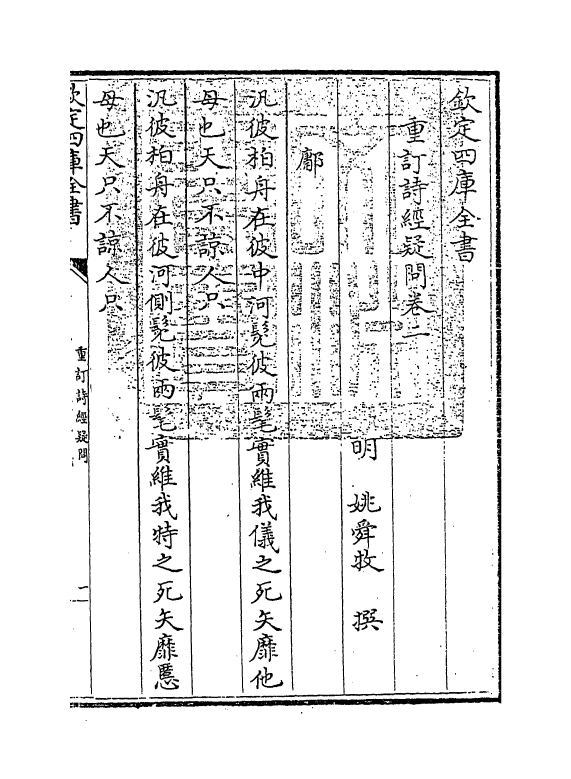 欽定四庫全書
重訂詩經疑問卷二
明 姚舜牧 撰
鄘
汎彼柏舟在彼中河髧彼兩髦實維我儀之死矢靡他
母也天只不諒人只
汎彼柏舟在彼河側髧彼兩髦實維我特之死矢靡慝
母也天只不諒人只
欽定四庫全書
重訂詩經疑問
一